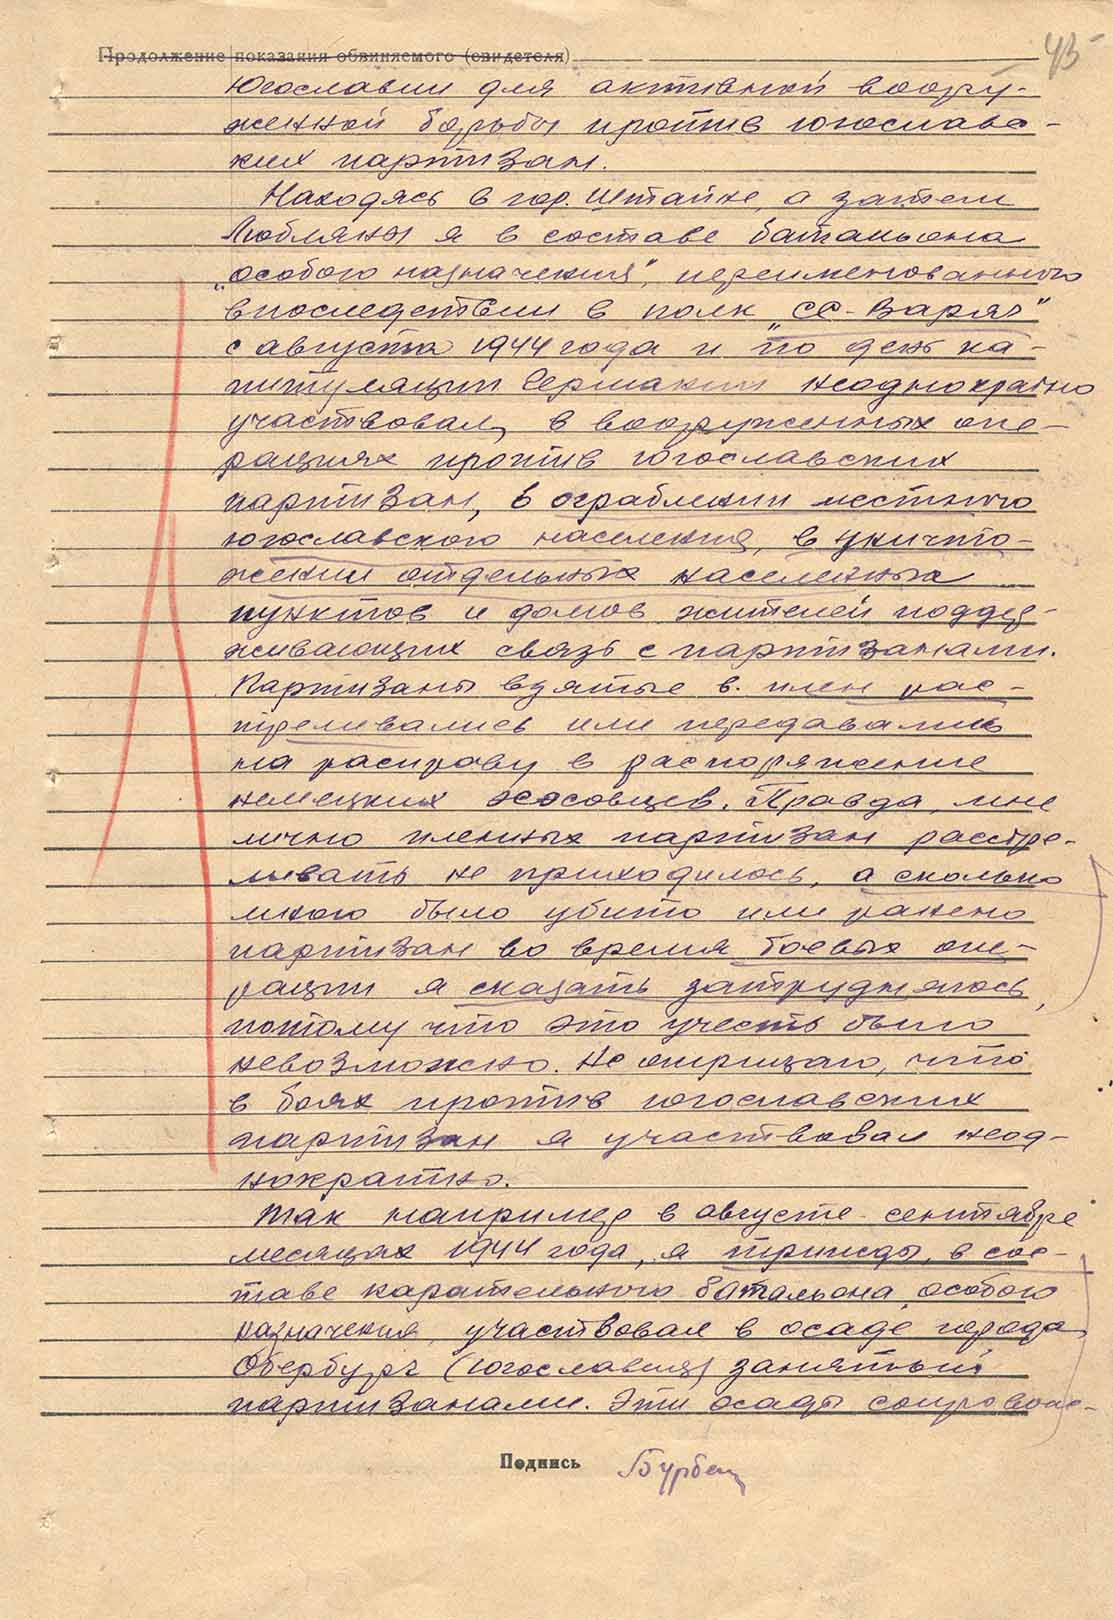 Продолжение показания обвиняемого (свидетеля)
43
Югославии для активной воору-
женной борьбы против югославс-
ких партизан.
Находясь в гор. Штайне, а затем
Любляны я в составе батальона
„особого назначения", переименованного
впоследствии в полк „СС-Варяг"
с августа 1944 года и по день ка-
питуляции Германии неоднократно
участвовал в вооруженных опе-
рациях против югославских
партизан, в ограблении местного
югославского населения, в уничто-
жении отдельных населенных
пунктов и домов жителей поддер-
живающих связь с партизанами.
Партизаны взятые в плен рас-
стреливались или передавались
на расправу в распоряжение
немецких эсэсовцев. Правда, мне
лично пленных партизан расстре-
ливать не приходилось, а сколько
мною было убито или ранено
партизан во время боевых опе-
рации я сказать затрудняюсь,
потому что это учесть было
невозможно. Не отрицаю, что
в боях против югославских
партизан я участвовал неод-
нократно.
Так например в августе-сентябре
месяцах 1944 года, я трижды, в сос-
таве карательного батальона особого
назначения, участвовал в осаде города
Обербург (Югославия) занятый
партизанами. Эти осады сопровож-
Подпись Бурбец